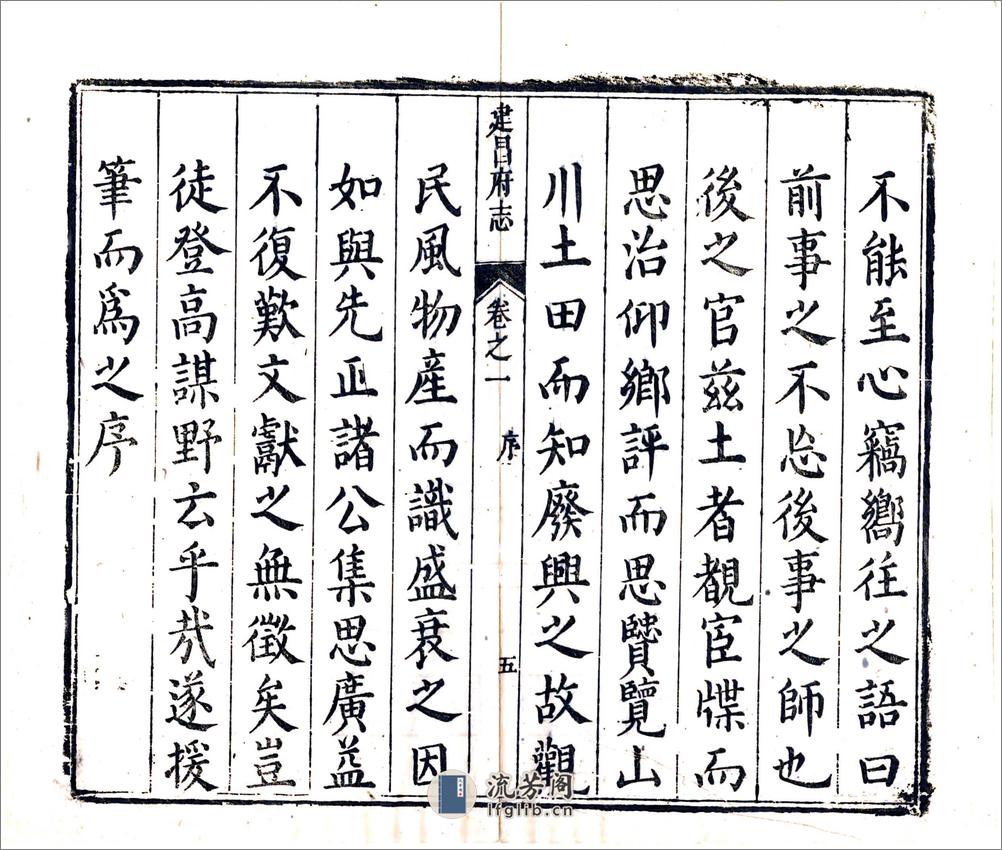 不能至心竊嚮往之語曰
前事之不忘後事之師也
後之官茲土者覩宦牒而
思治仰鄉評而思賢覽山
川土田而知廢興之故觀
建昌府志 卷之一 序 五
民風物產而識盛衰之因
如與先正諸公集思廣益
不復歎文獻之無徵矣豈
徒登高謀野云乎哉遂援
筆而爲之序
流芳阁
lfglib.cn